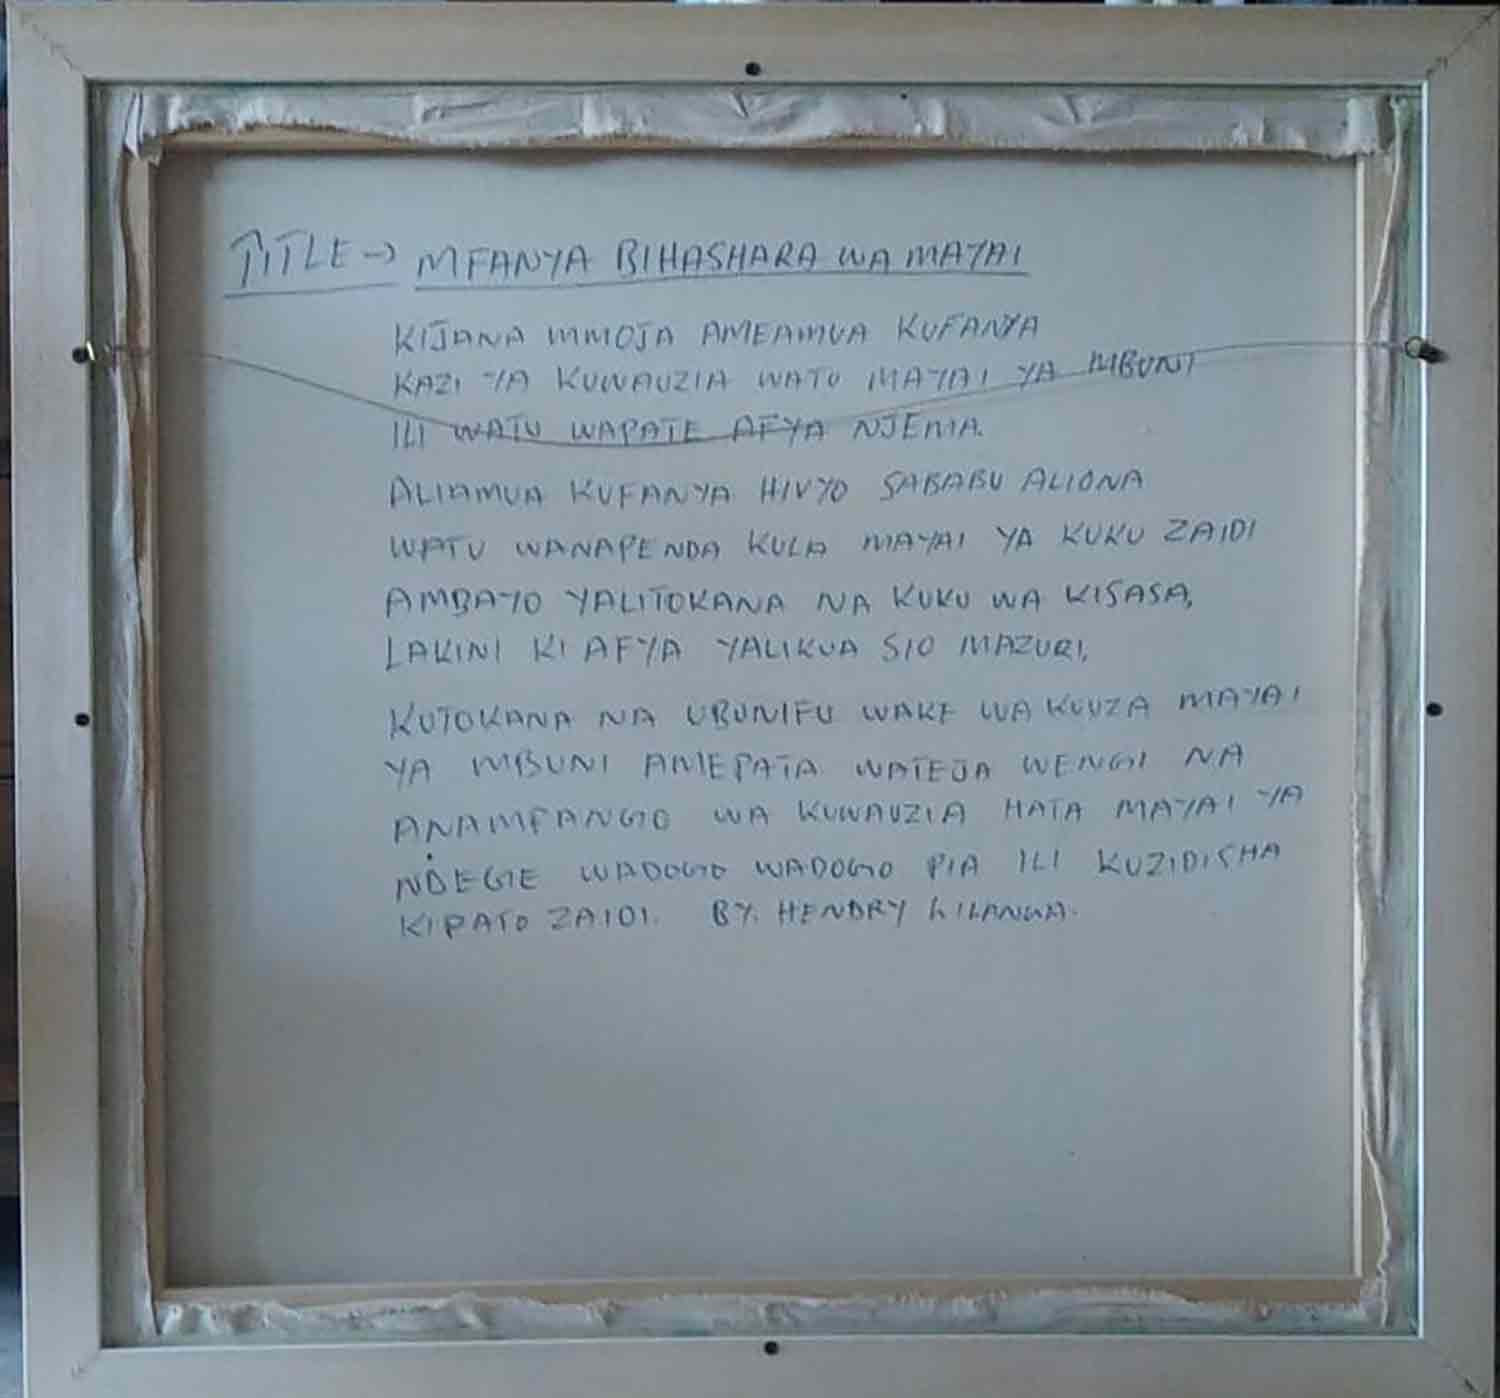 TITLE → MFANYA BIHASHARA WA MAYAI
KIJANA MMOJA AMEAMUA KUFANYA
KAZI YA KUWAUZIA WATU MAYAI YA MBUNI
ILI WATU WAPATE AFYA NJEMA.
ALIAMUA KUFANYA HIVYO SABABU ALIONA
WATU WANAPENDA KULA MAYAI YA KUKU ZAIDI
AMBAYO YALITOKANA NA KUKU WA KISASA,
LAKINI KI AFYA YALIKUA SIO MAZURI,
KUTOKANA NA UBUNIFU WAKE WA KUUZA MAYAI
YA MBUNI AMEPATA WATEJA WENGI NA
ANAMPANGO WA KUWAUZIA HATA MAYAI YA
NDEGE WADOGO WADOGO PIA ILI KUZIDISHA
KIPATO ZAIDI. BY. HENDRY LILANGA.